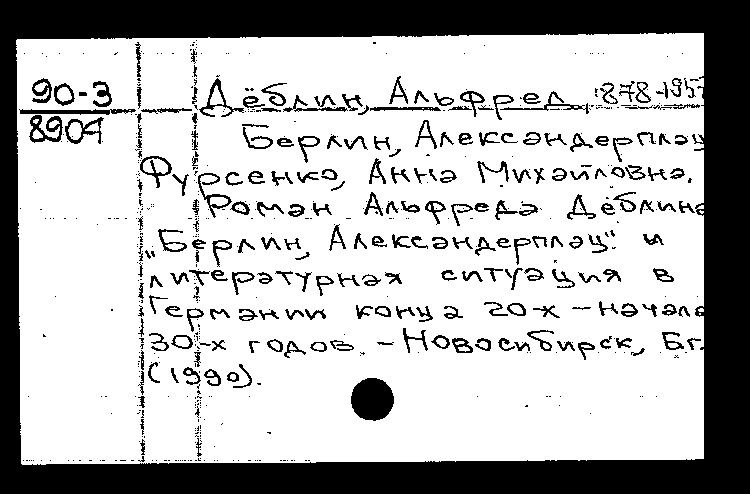 90-3
8904
Дёблин, Альфред 1878-1957
Берлин, Александерплац
Фурсенко, Анна Михайловна.
Роман Альфреда Дёблина
„Берлин, Александерплац" и
литературная ситуация в
Германии конца 20-х – начала
30-х годов. – Новосибирск, Бг.
(1990).